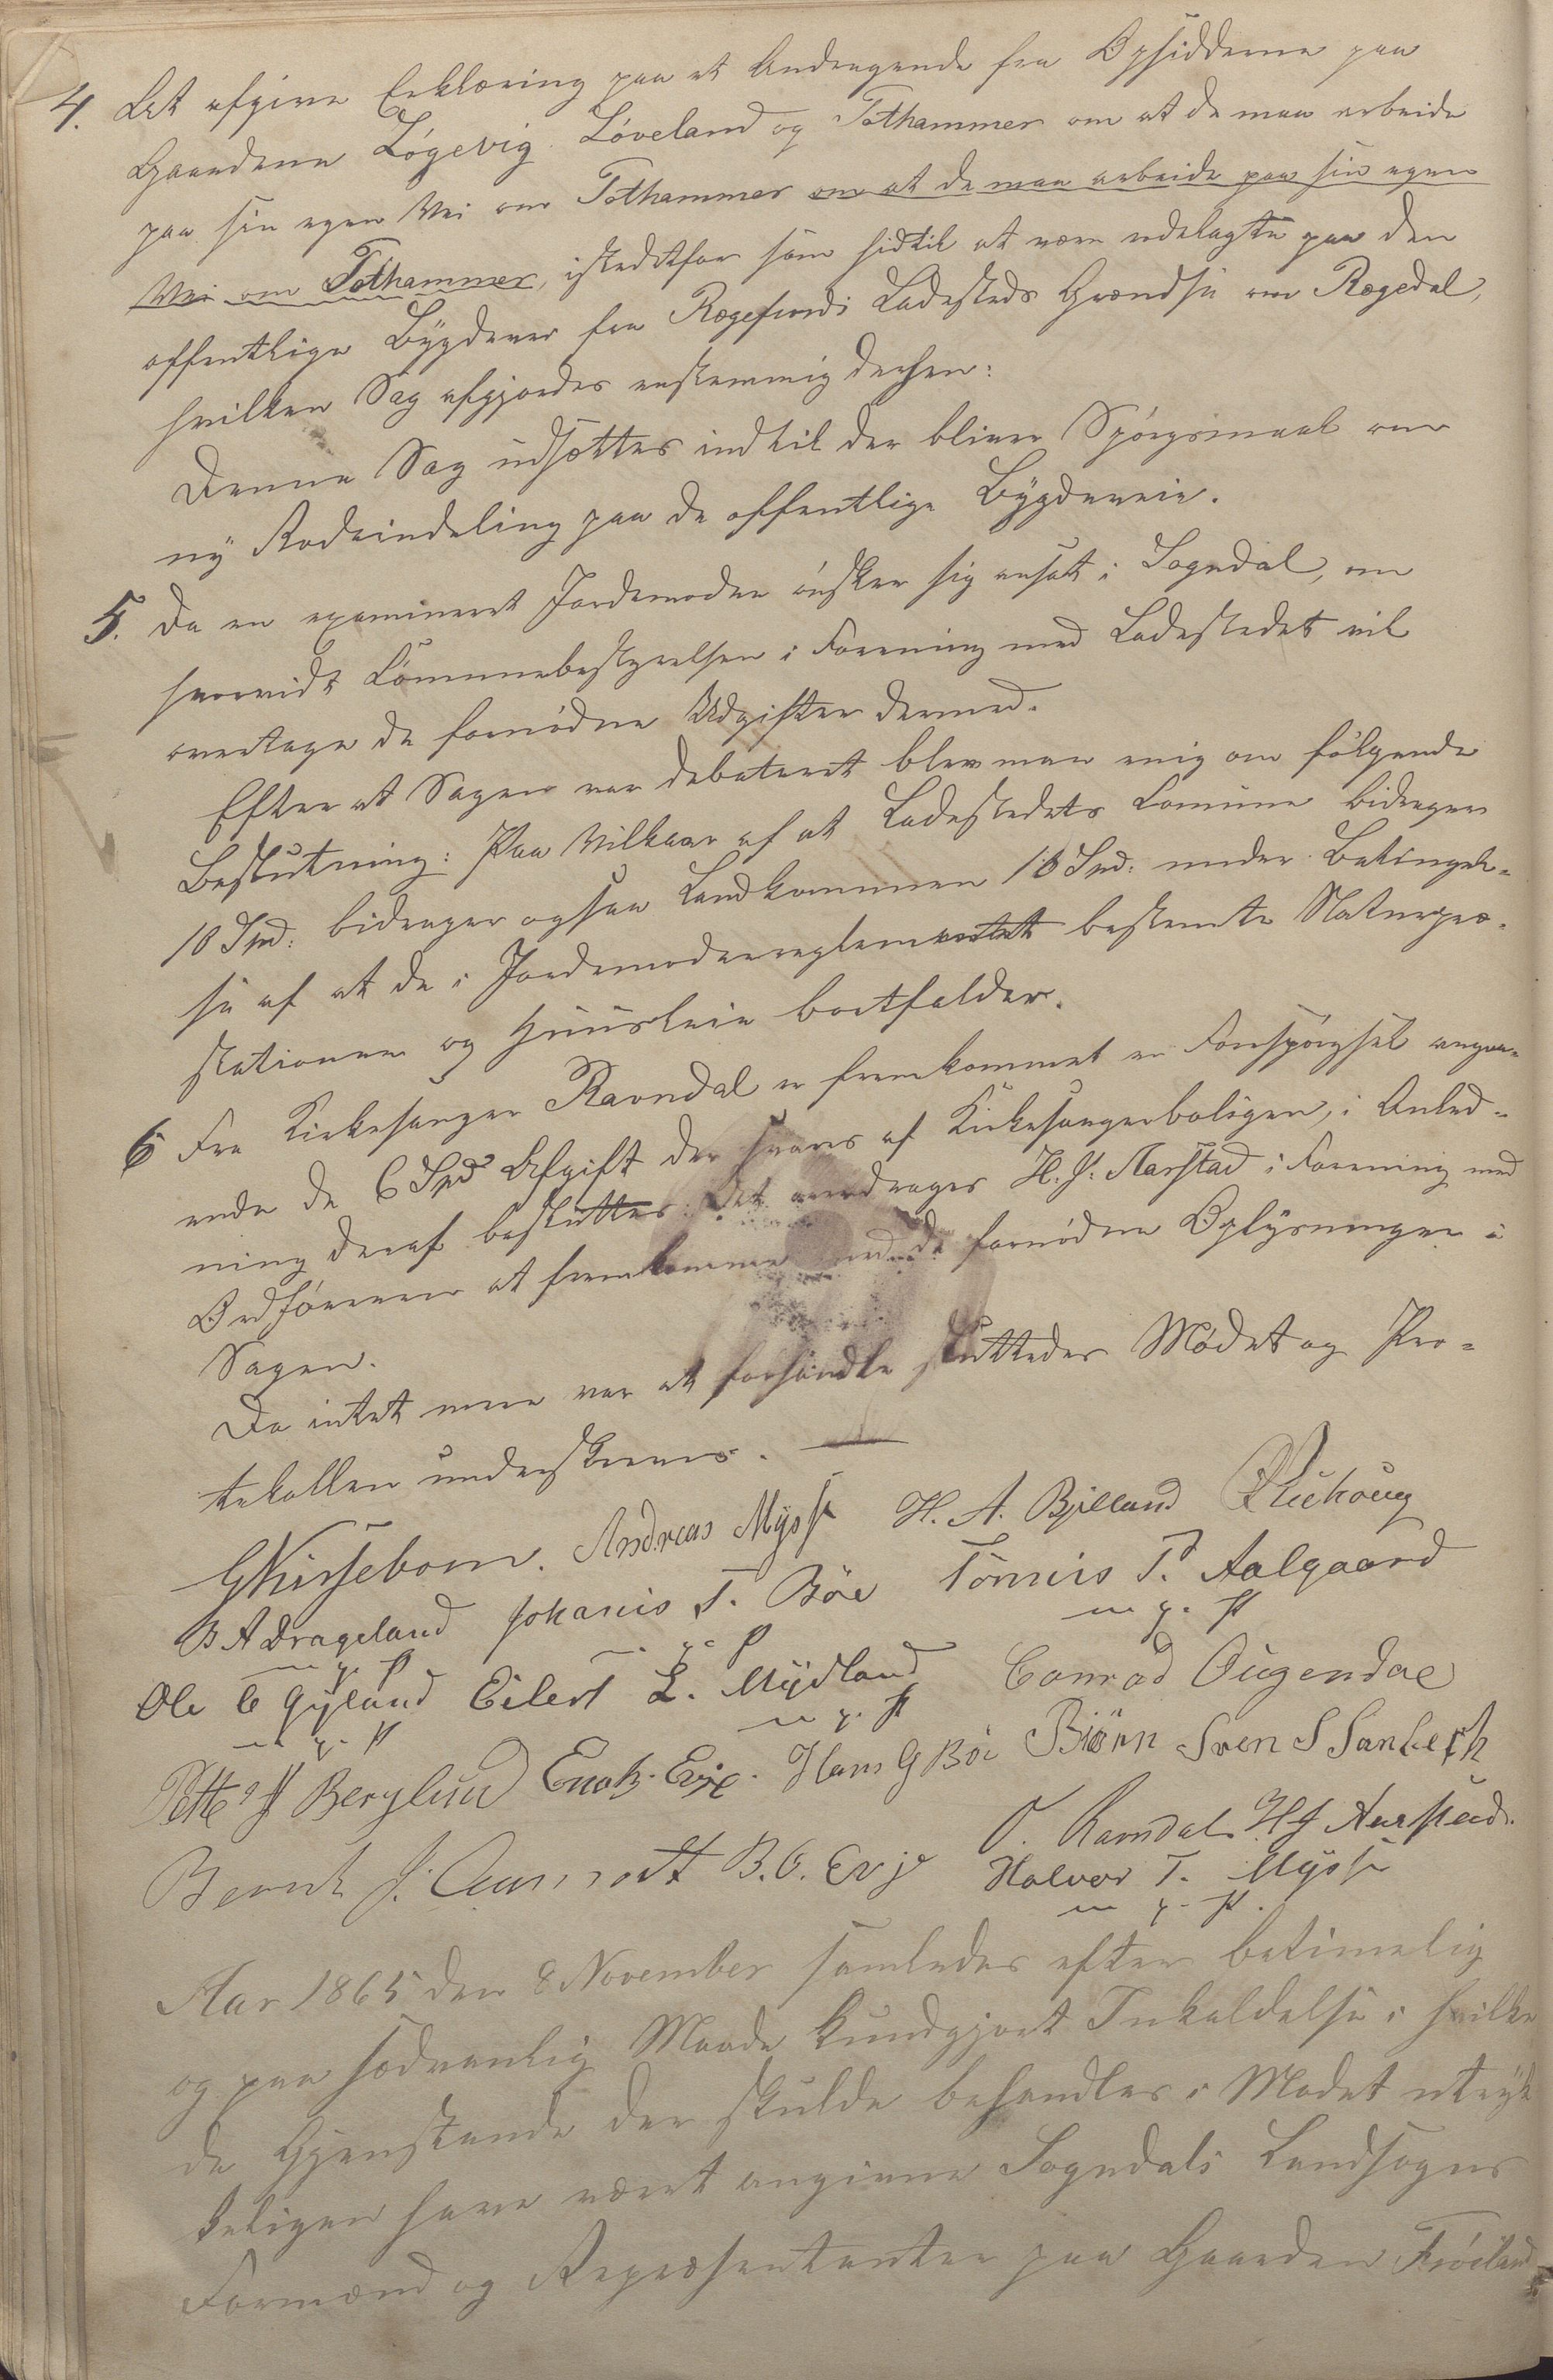 4. At afgive Erklæring paa et Andragende fra Opsidderne paa
Gaardene Løgevig Løveland og Tothammer om at de maa arbeide
paa sin egen Vei om Tothammer om at de maa arbeide paa sin egen
Vei om Tothammer, istedetfor som hidtil at være udelagte paa den
offentlige Bygdevei fra Rægefjords Ladesteds Grændse om Rægedal,
hvilken Sag afgjordes enstemmig derhen:
Denne Sag udsættes indtil der bliver Spörgsmaal om
ny Rodeindeling paa de offentlige Bygdeveie.
5. Da en examineret Jordemoder ønsker sig ansat i Sogndal, om
hvorvidt Communebestyrelsen i Forening med Ladestedet vil
overtage de fornødne Udgifter dermed.
Efter at Sagen var debateret blev man enig om følgende
Beslutning: Paa Vilkaar af at Ladestedets Comune bidrager
10 Spd: bidrager ogsaa Landkommunen 10 Spd: under Betingel-
se af at de i Jordemoderreglementet bestemte Naturpræ-
stationer og Huusleie bortfalder.
6 Fra Kirkesanger Ravndal er fremkommet en Forespørgsel angaa-
ende de 6 Spd Afgift der svares af Kirkesangerboligen, i Anled-
ning deraf besluttes: Det overdrages H. J. Aarstad i Forening med
Ordføreren at fremkomme med de fornødne Oplysninger i
Sagen.
Da intet mere var at forhandle sluttedes Mødet og Pro-
tokollen underskreves.
GKirsebom. Andreas Mysse H. A. Bjelland
B A Drageland Johanis T. Böe Tönnis T. Aalgaard
m. p. P m. p. P m. p. P
Ole C Gyland Eilert L. Mydland Conrad Ougendal
m. p. P m. p. P
Petter Berglund Enok Evje. Hans G Böe Biörn Sven S Sanbech
Bernt J. Aamodt B. O. Evje O. Ravndal H J Aarstad.
Halvor T. Mysse
m. p. P.
Aar 1865 den 8 November samledes efter betimelig
og paa sædvanlig Maade kundgjort Inkaldelse i hvilke
de Gjenstande der skulde behandles i Mødet utryk
keligen have været angivne Sogndals Landsogns
Formænd og Repræsentanter paa Gaarden Frøiland